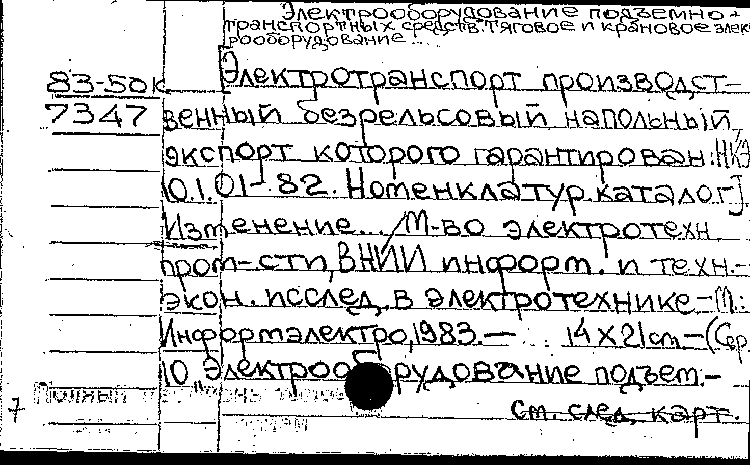 Электрооборудование подъемно-
транспортных средств. Тяговое и крановое элек
рооборудование...
83-50к
7347
Электротранспорт производст-
венный безрельсовый напольный,
экспорт которого гарантирован: НКЭ
10.1.01-82. Номенклатур. каталог].
Изменение... /М-во электротехн.
пром-сти, ВНИИ информ. и техн.-
экон. исслед. в электротехнике.-М.:
Информэлектро, 1983.— 14×21см.-(Сер.
10 "Электрооборудование подъем.-
7
см. след. карт.